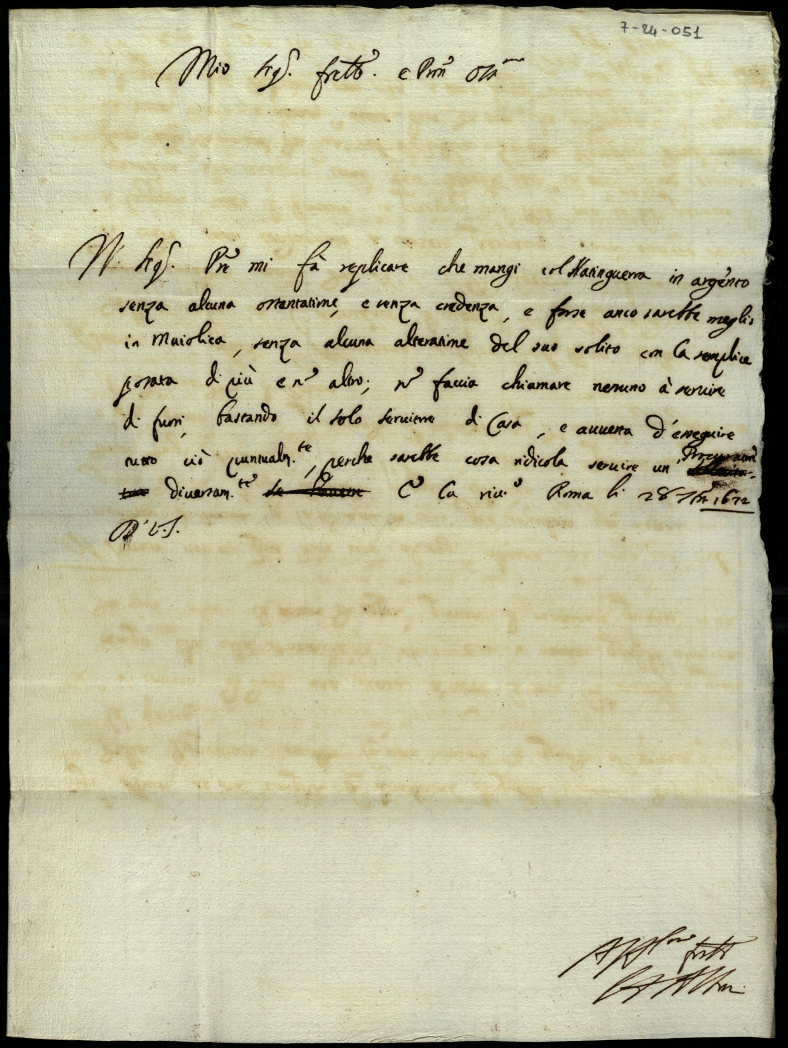 7-24-051
Mio Sig.r fratt.o e Pron Oss.mo
Il Sig.r Pre mi fà replicare che mangi col Maringuerra in argento
senza alcuna ostentatione, e senza credenza, e forse anco sarebbe meglio
in Maiolica, senza alcuna alteratione del suo solito con la semplice
posata di più e n.o altro; n.o faccia chiamare nessuno à servire
di fuori, bastando il solo servitore di Casa, e avverta d'esseguire
tutto ciò puntualm.te, perche sarebbe cosa ridicola servire un'
diversam.te Roma li 28 1672
D. V.S.
Aff.mo fratt.